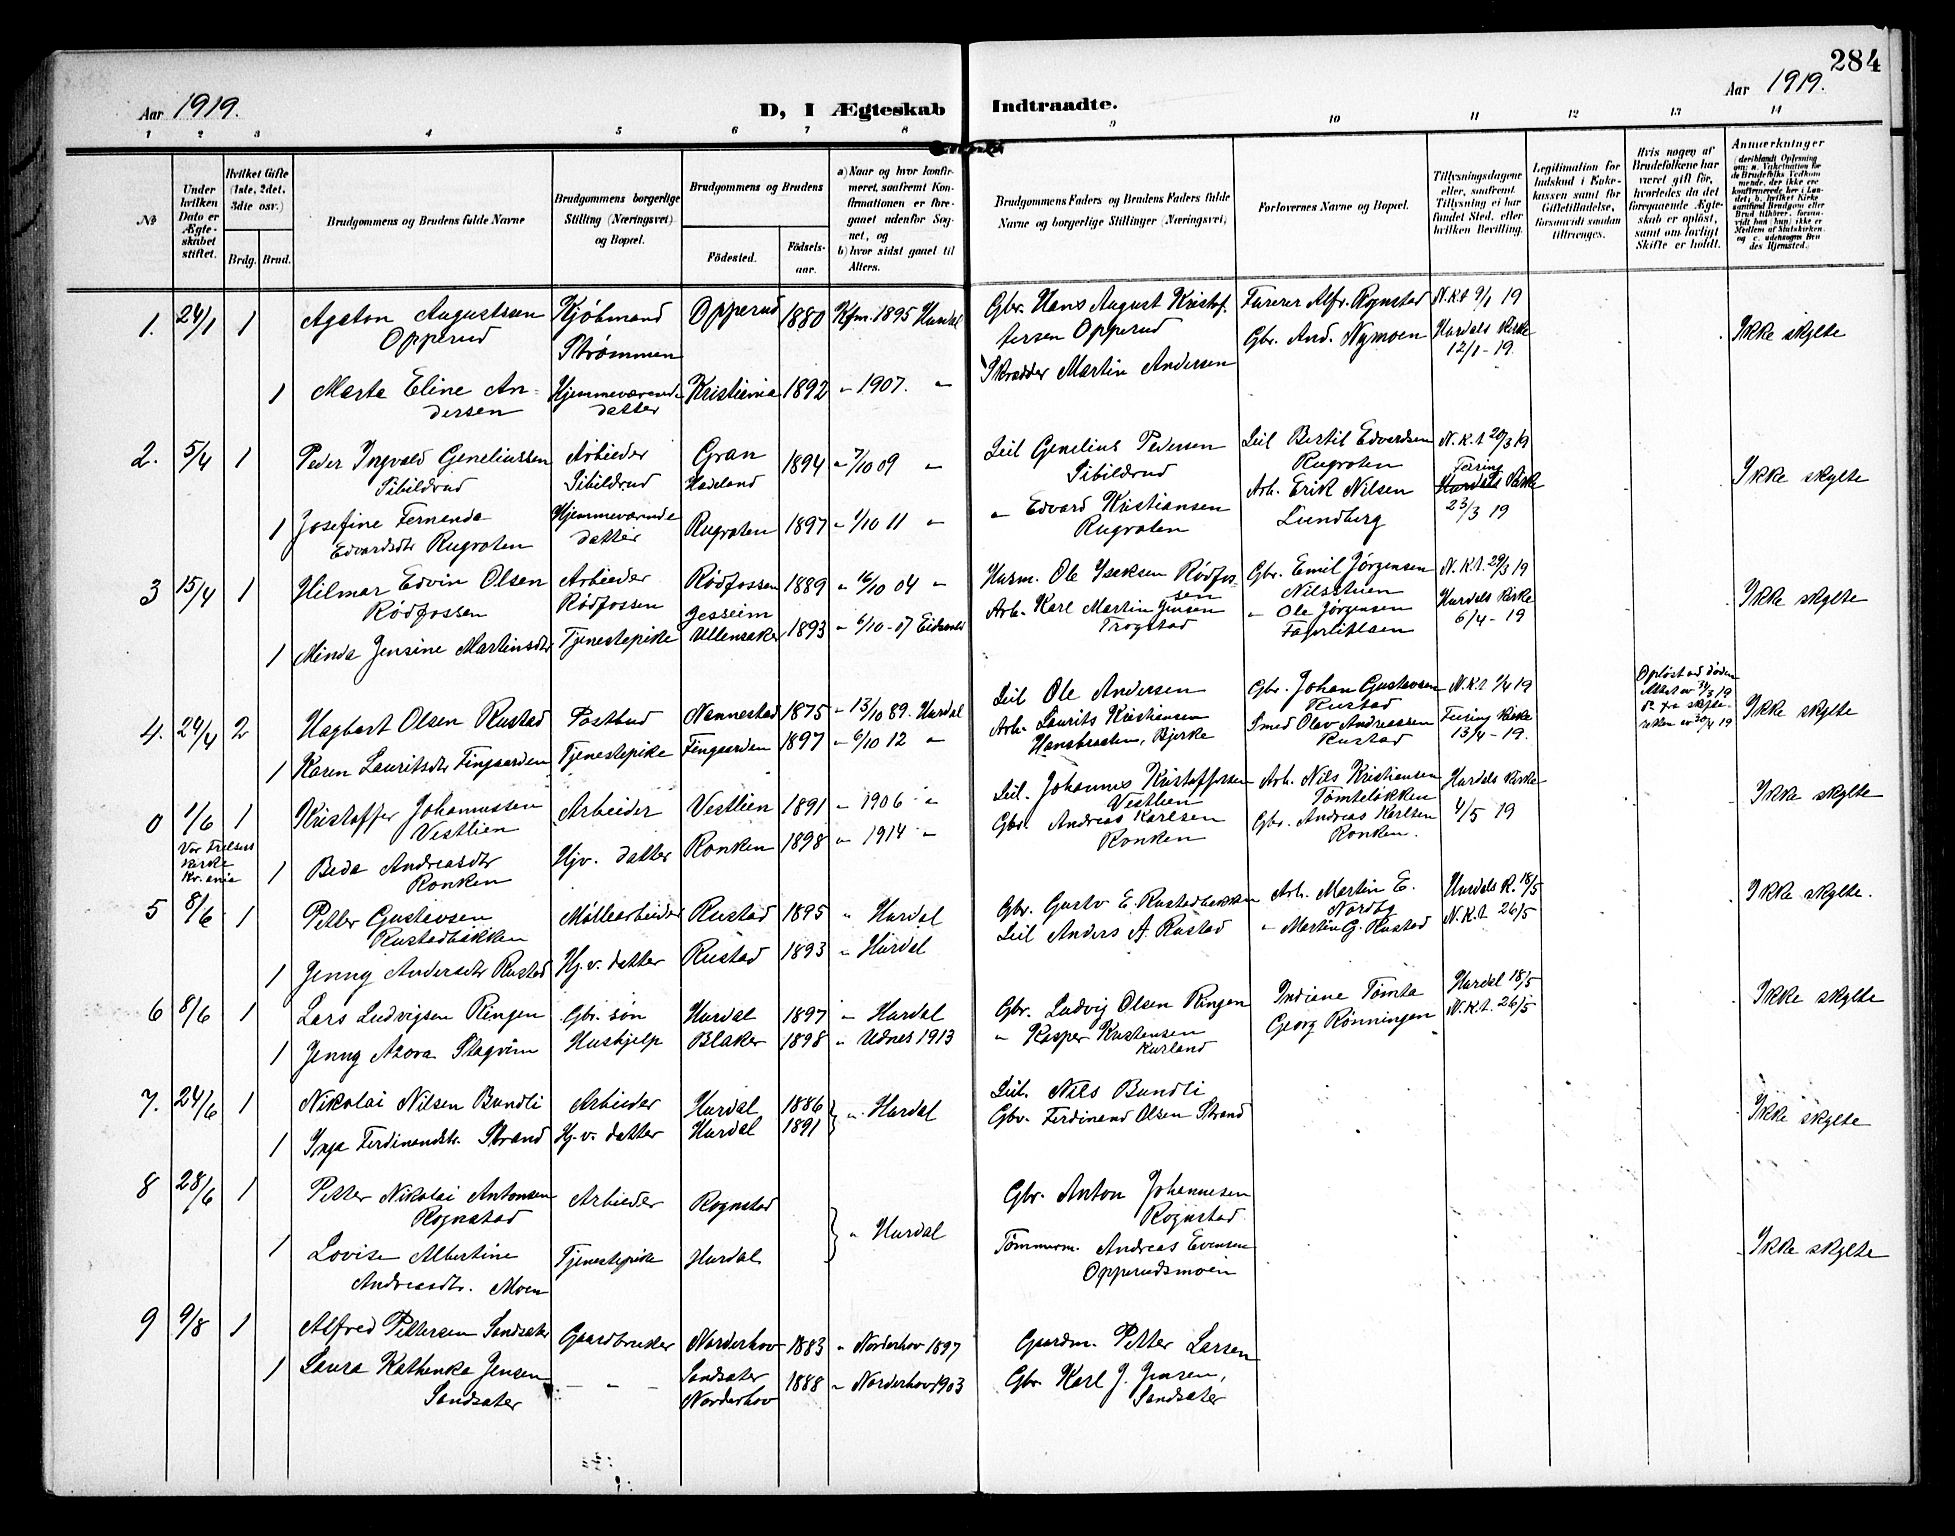 284
Aar 1919.
D, I Ægteskab Indtraadte.
Aar 1919.
1 2 3 4 5 6 7 8 9 10 11 12 13 14
No
Under hvilken Dato er Ægteskabet stiftet.
Hvilket Gifte (1ste, 2det, 3die osv.)
Brdg. Brud.
Brudgommens og Brudens fulde Navne
Brudgommens borgerlige Stilling (Næringsvei) og Bopæl.
Brudgommens og Brudens
Födested.
Födsels-aar.
a) Naar og hvor konfirmeret, saafremt Konfirmationen er foregaaet udenfor Sognet, og
b) hvor sidst gaaet til Alters.
Brudgommens Faders og Brudens Faders fulde Navne og borgerlige Stillinger (Næringsvei).
Forlovernes Navne og Bopæl.
Tillysningsdagene eller, saafremt Tillysning ei har fundet Sted, efter hvilken Bevilling.
Legitimation for Indskud i Enkekassen samt for Giftetilladelse, forsaavidt saadan tiltrænges.
Hvis nogen af Brudefolkene har været gift för, hvorledes da det foregaaende Ægteskab er oplöst, samt om lovligt Skifte er holdt.
Anmærkninger
1. 24/1 1 Agaton Augustssen
Opperud
Kjøbmand
Strømmen
Opperud 1880 Kfm. 1895 Hurdal
Gbr. Hans August Kristof-
fersen Opperud
Furerer Alfr. Rognstad
Gbr. And. Nymoen
N.K.t 9/1 19
Hurdals Kirke
12/1-19.
Ikke skylte
1 Marta Eline An-
dersen
Hjemmeværende
datter
Kristiania 1892 " 1907. "
Skrædder Martin Andersen
2. 5/4 1 Peder Ingvald Geneliussen
Sibildrud
Arbeider
Sibildrud
Gran
Hadeland
1894 " 7/10 09 "
Leil Genelius Pedersen
Sibildrud
Leil Bertil Edvardsen
Rugroten
N.K.t 20/3 19
Feiring
Hurdals Kirke
23/3 19
Ikke skylte
1 Josefine Fernanda
Edvardsdtr Rugroten
Hjemmeværende
datter
Rugroten 1897 " 1/10 11 "
" Edvard Kristiansen
Rugroten
Arb. Erik Nilsen
Lundberg
3 15/4 1 Hilmar Edvin Olsen
Rødfossen
Arbeider
Rødfossen
Rødfossen 1889 " 16/10 04 "
Husm. Ole Iseksen Rødfos-
sen
Gbr. Emil Jørgensen
Nilsstuen
N.K.t. 29/3 19
Hurdals Kirke
6/4-19
Ikke skylte
1 Minda Jensine Martinsdtr
Tjenestepike
Jesseim
Ullensaker 1893 " 6/10-07 Eidsvold
Arb. Karl Martin Jensen
Trogstad
" Ole Jørgensen
Fagerlitlaen
4. 24/4 2 Hagbart Olsen Rustad
Postbud
Nannestad 1875 " 13/10 89. Hurdal
Leil Ole Andersen
Gbr. Johan Gustavsen
Rustad
N.K.t 2/4 19
Feiring Kirke
13/4-19.
Opløst ved døden
Ikke skylte
1 Karen Lauritsdtr Fingaarden
Tjenestepike
Fingaarden 1897 " 6/10 12 "
Arb. Laurits Kristiansen
Hansbraaten, Bjerke
Smed Olav Andreassen
Rustad
0 1/6 1 Kristoffer Johannessen
Vestlien
Vor Frelsers
Kirke
Kr.ania
Arbeider
Vestlien 1891 " 1906 "
Leil. Johannes Kristoffersen
Vestlien
Arb. Nils Kristiansen
Tømteløkken
Hurdals Kirke
4/5 19
Ikke skylte
1 Beda Andreasdtr
Ronken
Hjv. datter
Ronken 1898 " 1914 "
Gbr. Andreas Karlsen
Ronken
Gbr. Andreas Karlsen
Ronken.
5 8/6 1 Petter Gustavsen
Rustadbakken
Møllearbeider
Rustad 1895 " Hurdal
Gbr. Gustv E. Rustadbakken
Arb. Martin E.
Nordby
Hurdals K. 18/5
N.K.t. 26/5
Ikke skylte.
1 Jenny Andersdtr Rustad
Hj.v. datter
Rustad 1893 " Hurdal
Leil Anders A. Rustad
" Martin G. Rustad
6 8/6 1 Lars Ludvigsen Ringen
Gbr. søn
Hurdal 1897 " Hurdal
Gbr. Ludvig Olsen Ringen
Indiane Tømta
Hurdal 18/5
N.K.t. 26/5
Ikke skylte
1 Jenny Azora Slagvim
Hushjelp
Blaker 1898 " Udnes 1913
" Kasper Kristensen
Kurland
Georg Rønningen
7. 24/6 1 Nikolai Nilsen Bundli
Arbeider
Hurdal 1886 " Hurdal
Leil. Nils Bundli
Ikke skylte
1 Inga Ferdinandsdtr. Strand
Hj.v. datter
Hurdal 1891
Gbr. Ferdinand Olsen Strand
8 28/6 1 Petter Nikolai Antonsen
Rognstad
Arbeider
Rognstad
" Hurdal
Gbr. Anton Johannesen
Rognstad
Ikke skylte
1 Lovise Albertine
Andreasdtr. Moen
Tjenestepike
Hurdal
Tømmerm. Andreas Evensen
Opperudsmoen
9 9/8 1 Alfred Pettersen Sandsæter
Gaardbruker
Norderhov 1883 " Norderhov 1897
Gaardm. Petter Larsen
1 Laura Kathinka Jensen
Sandsæter
Sandsæter
Norderhov
1888 " Norderhov 1903
Gbr. Karl J. Jensen,
Sandsæter